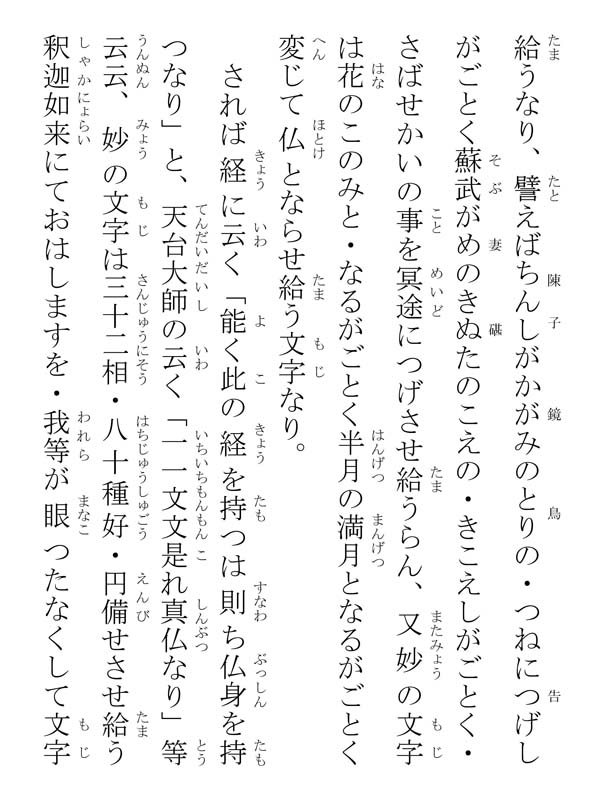 給うなり、譬えばちんしがかがみのとりの・つねにつげし
がごとく蘇武がめのきぬたのこえの・きこえしがごとく・
さばせかいの事を冥途につげさせ給うらん、又妙の文字
は花のこのみと・なるがごとく半月の満月となるがごとく
変じて仏とならせ給う文字なり。
されば経に云く「能く此の経を持つは則ち仏身を持
つなり」と、天台大師の云く「一一文文是れ真仏なり」等
云云、妙の文字は三十二相・八十種好・円備せさせ給う
釈迦如来にておはしますを・我等が眼つたなくして文字